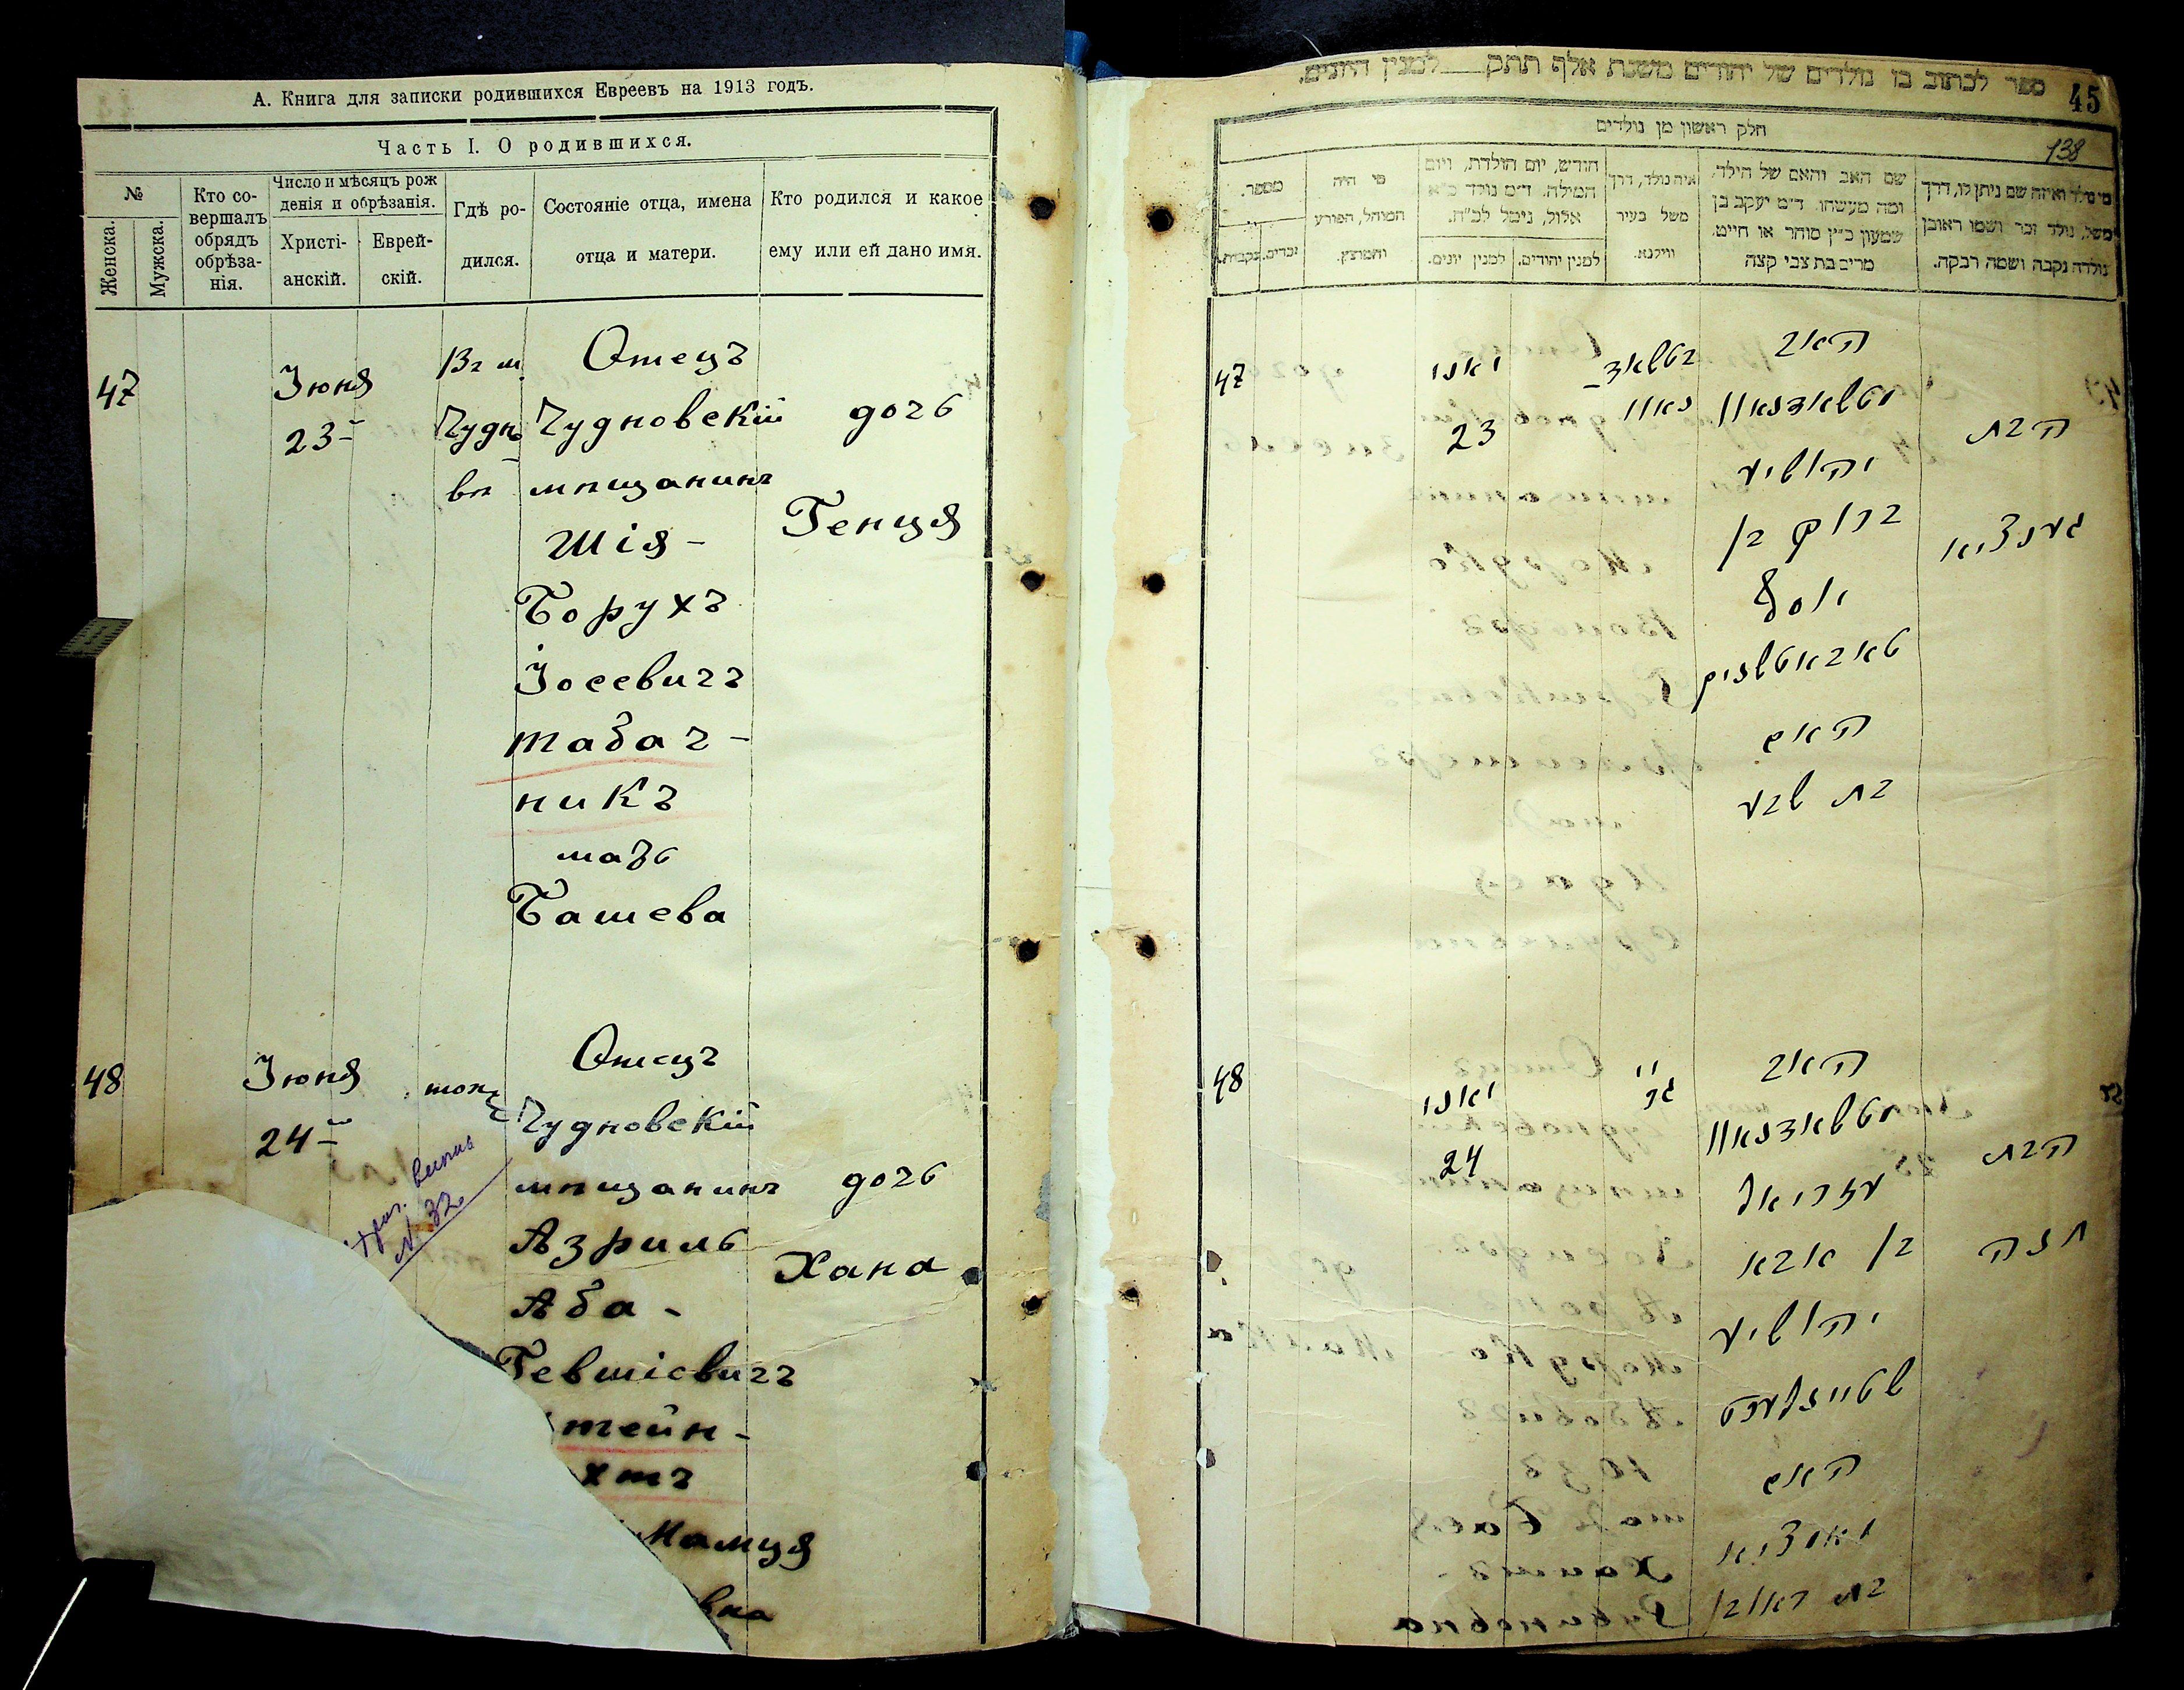 А. Книга для записки родившихся Евреевъ на 1913 годъ.
Часть I. О родившихся.
№
Женска.
Мужска.
Кто со-
вершалъ
обрядъ
обрѣза-
нія.
Число и мѣсяцъ рож
денія и обрѣзанія.
Христі-
анскій.
Еврей-
скій.
Гдѣ ро-
дился.
Состояніе отца, имена
отца и матери.
Кто родился и какое
ему или ей дано имя.
47
Іюня
23
Вг м
Чудно
вѣ
Отецъ
Чудновскій
мѣщанинъ
Шія-
Борухъ
Іосевичъ
Табач-
никъ
мать
Башева
дочь
Генця
48
Іюня
24
тоже
№ 32
Отецъ
Чудновскій
мѣщанинъ
Азриль
Аба-
Гевшіевичъ
тейн-
хтъ
Мамця
вна
дочь
Хана
45
138
ספר לכתוב בו נולדים של יהודים משנת אלף תתק למנין היונים.
חלק ראשון מן נולדים
מי נולד ואיזה שם ניתן לו, דרך
משל, נולד זכר ושמו ראובן
נולדה נקבה ושמה רבקה.
שם האב והאם של הילד.
ומה מעשהו. ד״מ יעקב בן
שמעון כ״ץ סוחר או חייט.
מרים בת צבי קצה
איה נולד, דרך
משל בעיר
ווילנא.
חודש, יום הולדת, ויום
המילה. ד״מ נולד כ״א
אלול, נימול לכ״ח.
למנין יהודים.
למנין יונים.
מי היה
המוהל, הפורע
והמוצץ.
מספר.
זכרים.
נקבות.
47
יאני
23
טשאד-
נאוו
האב
מטשאדנאוו
יהושיע
ברוך בן
יוסף
טאבאטשניק
האם
בת שבע
הבת
גענציא
48
יאני
24
גכ״
האב
מטשאדנאוו
עזריאל
בן אבא
יהושיע
האם
בת ראובן
הבת
חנה